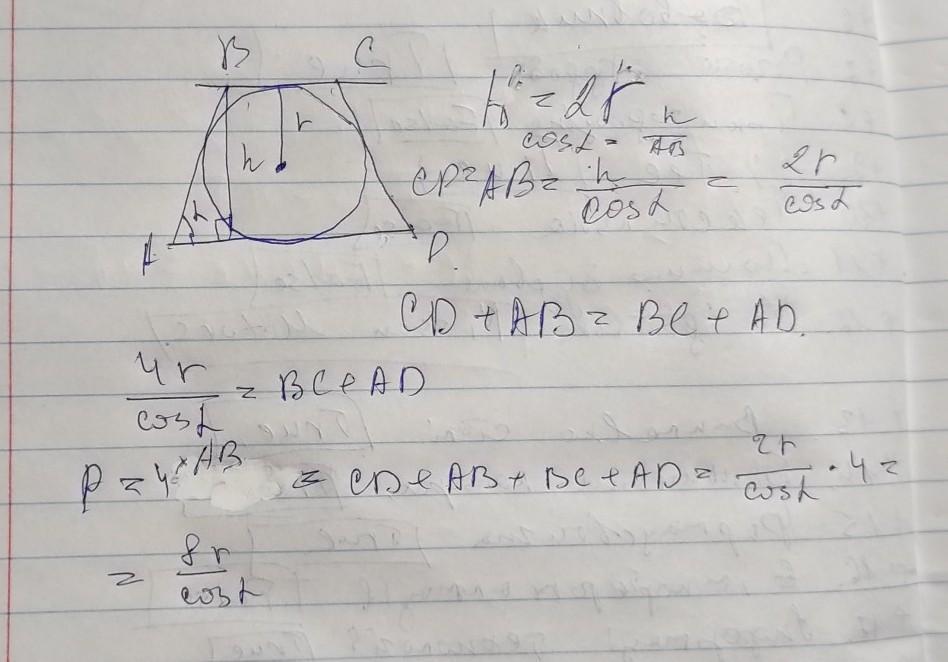 B C
r
h
α
A D.
h = 2r
cosα = h/AB
CD = AB = h/cosα = 2r/cosα
CD + AB = BC + AD.
4r/cosα = BC + AD
P = 4 × AB = CD + AB + BC + AD = 2r/cosα · 4 =
= 8r/cosα